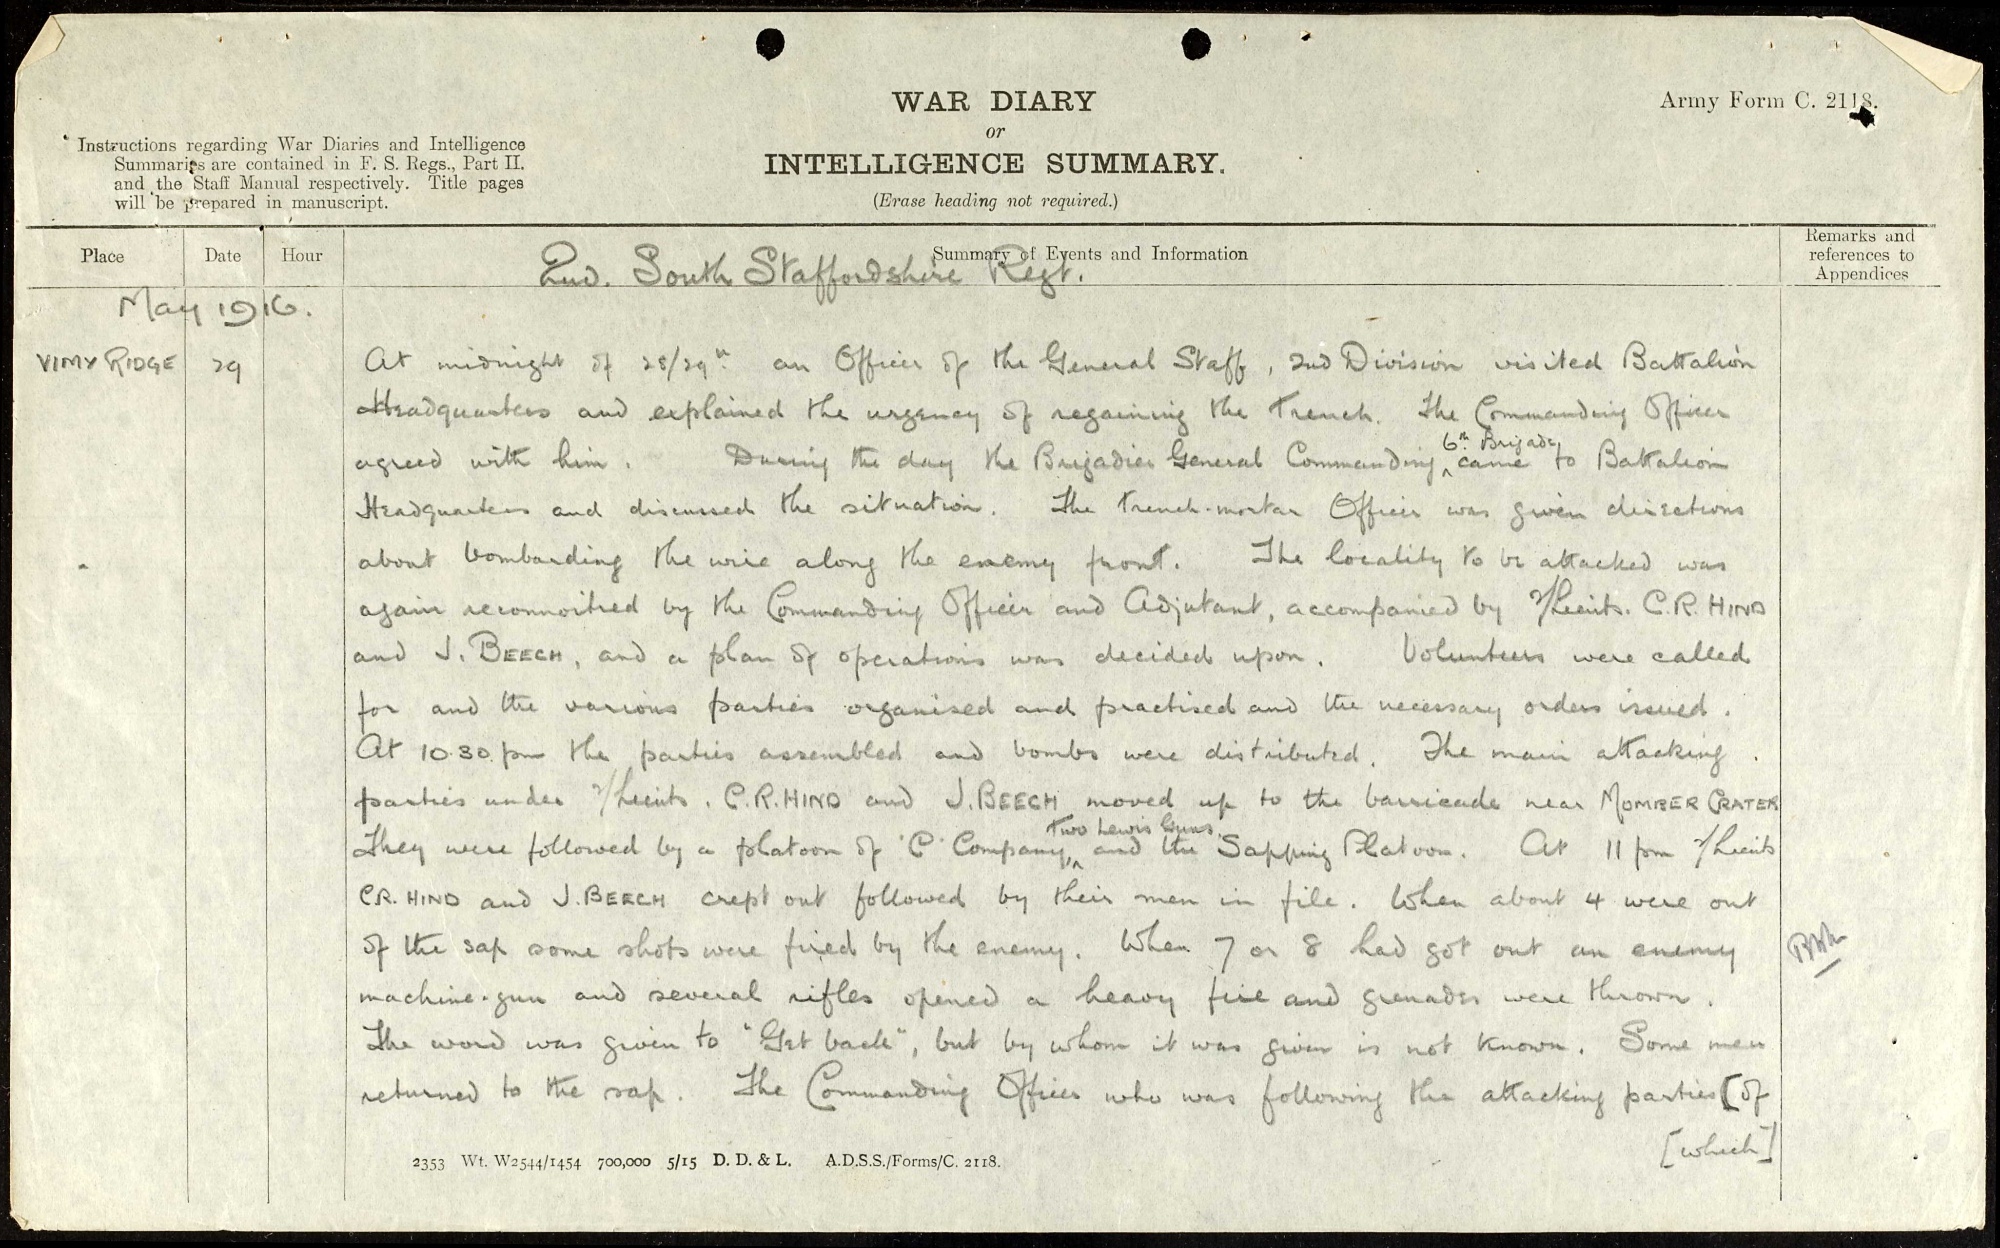 WAR DIARY
or
INTELLIGENCE SUMMARY.
(Erase heading not required.)
Army Form C. 2118.
Instructions regarding War Diaries and Intelligence
Summaries are contained in F. S. Regs., Part II.
and the Staff Manual respectively. Title pages
will be prepared in manuscript.
Place
Date
Hour
Summary of Events and Information
Remarks and
references to
Appendices
2nd. South Staffordshire Regt.
May 1916.
VIMY RIDGE
29
At midnight of 28/29th an Officer of the General Staff, 2nd Division visited Battalion
Headquarters and explained the urgency of regaining the trench. The Commanding Officer
agreed with him. During the day the Brigadier General Commanding 6th Brigade came to Battalion
Headquarters and discussed the situation. The trench-mortar Officer was given directions
about bombarding the wire along the enemy front. The locality to be attacked was
again reconnoitred by the Commanding Officer and Adjutant, accompanied by 2/Lieuts. C.R. HIND
and J. BEECH, and a plan of operations was decided upon. Volunteers were called
for and the various parties organised and practised and the necessary orders issued.
At 10.30 pm the parties assembled and bombs were distributed. The main attacking
parties under 2/Lieuts. C.R. HIND and J. BEECH moved up to the barricade near MOMBER CRATER
They were followed by a platoon of 'C' Company, two Lewis Guns, and the Sapping Platoon. At 11 pm 2/Lieuts
C.R. HIND and J. BEECH crept out followed by their men in file. When about 4 were out
of the sap some shots were fired by the enemy. When 7 or 8 had got out an enemy
machine-gun and several rifles opened a heavy fire and grenades were thrown.
The word was given to "Get back", but by whom it was given is not known. Some men
returned to the sap. The Commanding Officer who was following the attacking parties [of
[which]
2353 Wt. W2544/1454 700,000 5/15 D. D. & L. A.D.S.S./Forms/C. 2118.